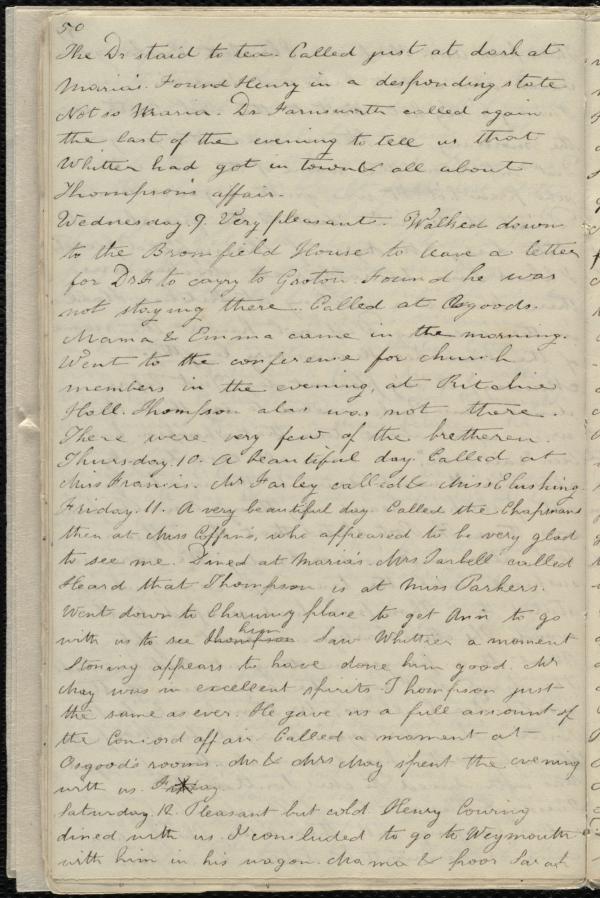 50
The Dr staid to tea. Called just at dark at
Maria's. Found Henry in a desponding state
Not so Maria. Dr Farnsworth called again
the last of the evening to tell us that
Whittier had got in town & all about
Thompson's affair.
Wednesday. 9. Very pleasant. Walked down
to the Bromfield House to leave a letter
for Dr F to carry to Groton. Found he was
not staying there. Called at Osgoods.
Mama & Emma came in the morning.
Went to the conference for church
members in the evening, at Ritchie
Hall. Thompson alas was not there.
There were very few of the bretheren.
Thursday. 10. A beautiful day. Called at
Miss Francis. Mr Farley called & Miss E Cushing.
Friday. 11. A very beautiful day. Called the Chapmans
then at Miss Coffin's, who appeared to be very glad
to see me. Dined at Maria's. Mrs Tarbell called
Heard that Thompson is at Miss Parkers.
Went down to Chauncy place to get Ann to go
with us to see Thompson him Saw Whittier a moment
Stoning appears to have done him good. Mr
May was in excellent spirits. Thompson just
the same as ever. He gave us a full account of
the Concord affair. Called a moment at
Osgood's rooms. Mr & Mrs May spent the evening
with us. Friday
Saturday. 12. Pleasant but cold Henry Cowing
dined with us. I concluded to go to Weymouth
with him in his wagon. Mama & poor Sarah